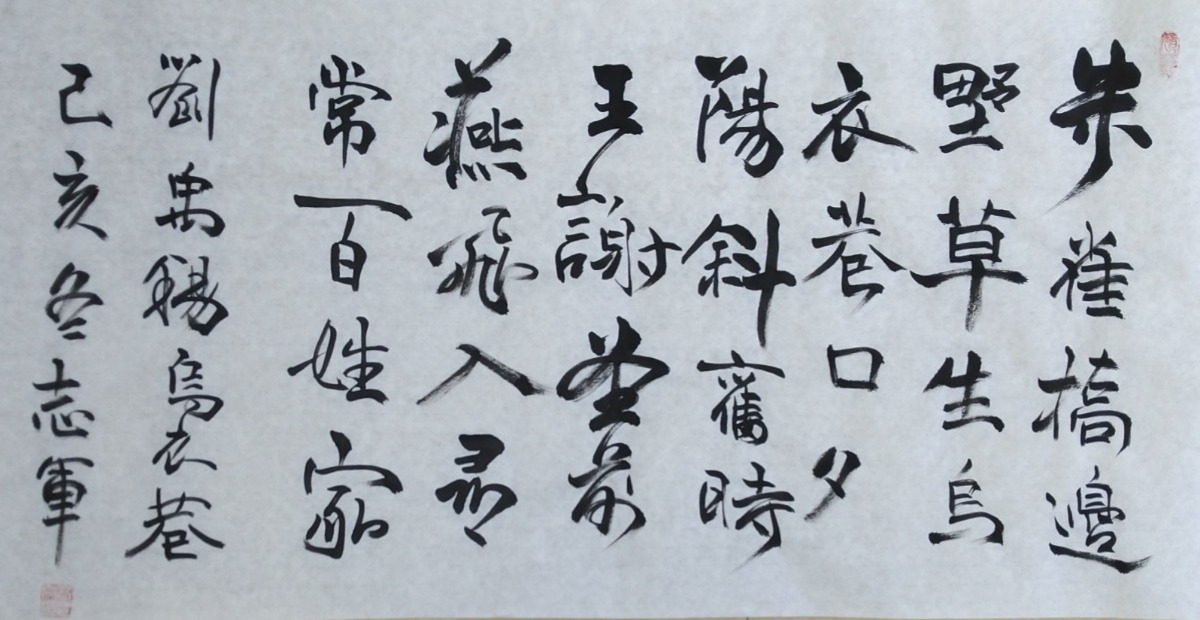 朱雀橋邊
墅草生烏
衣巷口夕
陽斜舊時
王謝堂前
燕飛入尋
常百姓家
劉禹錫烏衣巷
己亥冬志軍